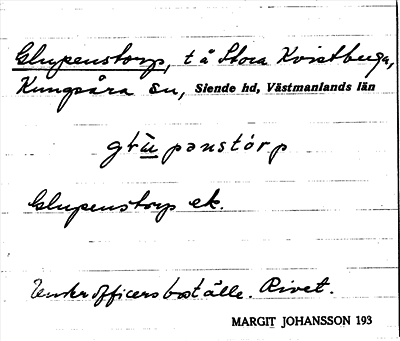 Glupenstorp, t å Stora Kvistberga,
Kungsåra sn, Siende hd, Västmanlands län
glùpenstórp
Glupenstorp ek.
Underofficersboställe. Rivet.
MARGIT JOHANSSON 193